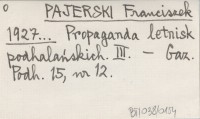 o
PAJERSKI Franciszek
1927... Propaganda letnisk
podhalańskich. III. — Gaz.
Podh. 15, nr 12.